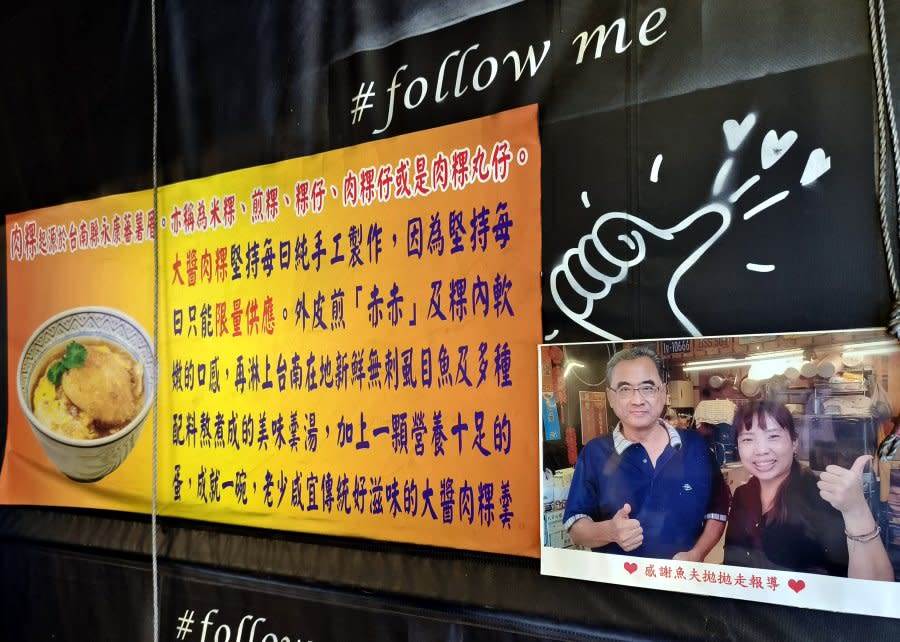 # follow me
肉粿起源於台南縣永康蕃薯厝。亦稱為米粿、煎粿、粿仔、肉粿仔或是肉粿丸仔。
大醬肉粿堅持每日純手工製作,因為堅持每
日只能限量供應。外皮煎「赤赤」及粿內軟
嫩的口感,再淋上台南在地新鮮無刺虱目魚及多種
配料熬煮成的美味羹湯,加上一顆營養十足的
蛋,成就一碗,老少咸宜傳統好滋味的大醬肉粿羹
感謝魚夫拋拋走報導
# follow